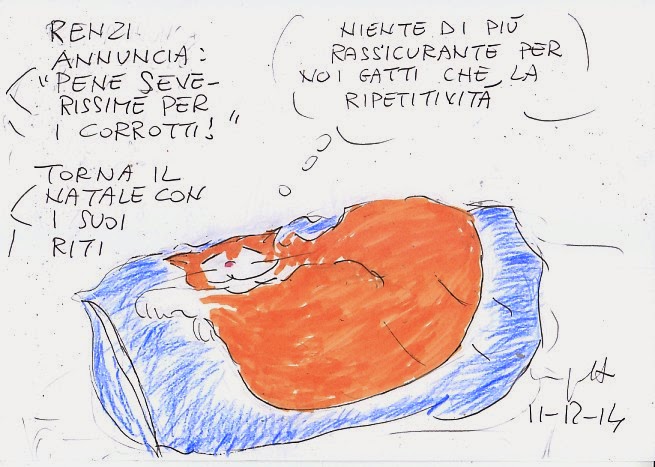 RENZI
ANNUNCIA:
"PENE SEVE-
RISSIME PER
I CORROTTI!"
TORNA IL
NATALE CON
I SUOI
RITI
NIENTE DI PIÙ
RASSICURANTE PER
NOI GATTI CHE LA
RIPETITIVITÀ
11-12-14